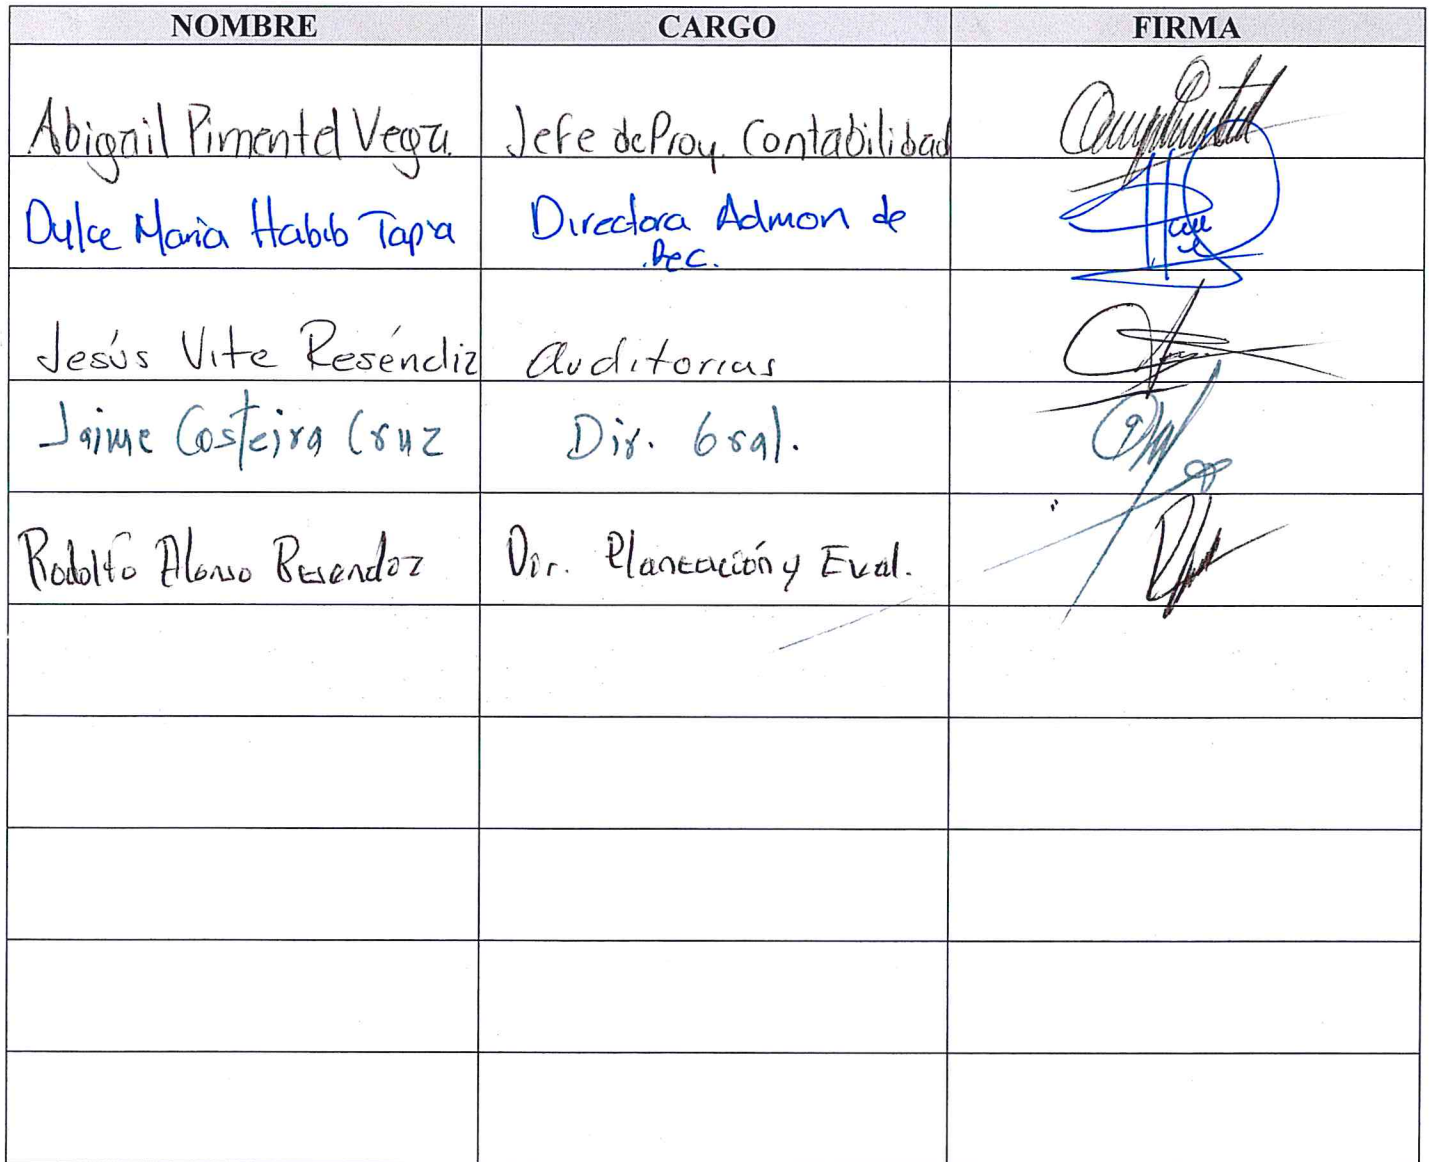 NOMBRE CARGO FIRMA
Abigail Pimentel Vega. Jefe de Proy. Contabilidad
Dulce Maria Habib Tapia Directora Admon de
Rec.
Jesús Vite Reséndiz Auditorias
Jaime Costeira Cruz Dir. Gral.
Rodolfo Alonso Dir. Planeación y Eval.